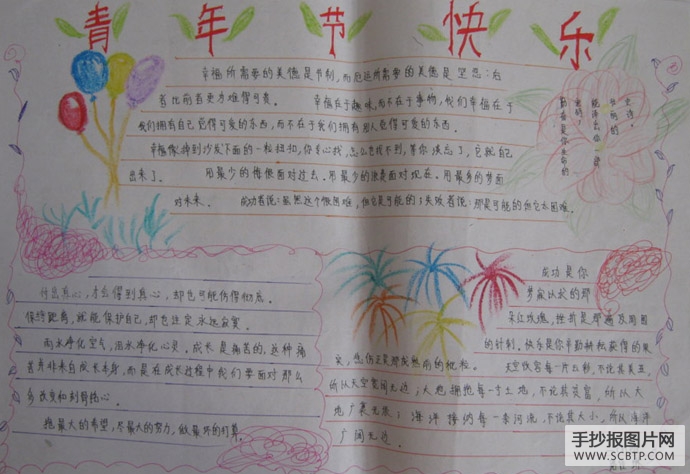 青年节快乐
幸福所需要的美德是节制,而厄运所需要的美德是坚忍;后
者比前者更为难得可贵。 幸福在于趣味,而不在于事物,我们幸福在于
我们拥有自己觉得可爱的东西,而不在于我们拥有别人觉得可爱的东西。
幸福像掉到沙发下面的一粒纽扣,你专心找,怎么也找不到,等你淡忘了,它就自己
出来了。 用最少的悔恨面对过去。用最少的浪费面对现在。用最多的梦面
对未来。 成功者说:虽然这个很困难,但它是可能的;失败者说:那是可能的但它太困难。
付出真心,才会得到真心,却也可能伤得彻底。
保持距离,就能保护自己,却也注定永远寂寞。
雨水净化空气,泪水净化心灵。成长是痛苦的,这种痛
苦并非来自成长本身,而是在成长过程中我们要面对那么
多改变和刻骨铭心。
抱最大的希望,尽最大的努力,做最坏的打算。
成功是你
梦寐以求的那
朵红玫瑰,挫折是那遍及周围
的针刺。快乐是你辛勤耕耘获得的果
实,悲伤正是那成熟前的秕粒。 天空收容每一片云彩,不论其美丑,
所以天空宽阔无边;大地拥抱每一寸土地,不论其贫富,所以大
地广袤无垠;海洋接纳每一条河流,不论其大小,所以海洋
广阔无边。
手抄报图片网
WWW.SCBTP.COM